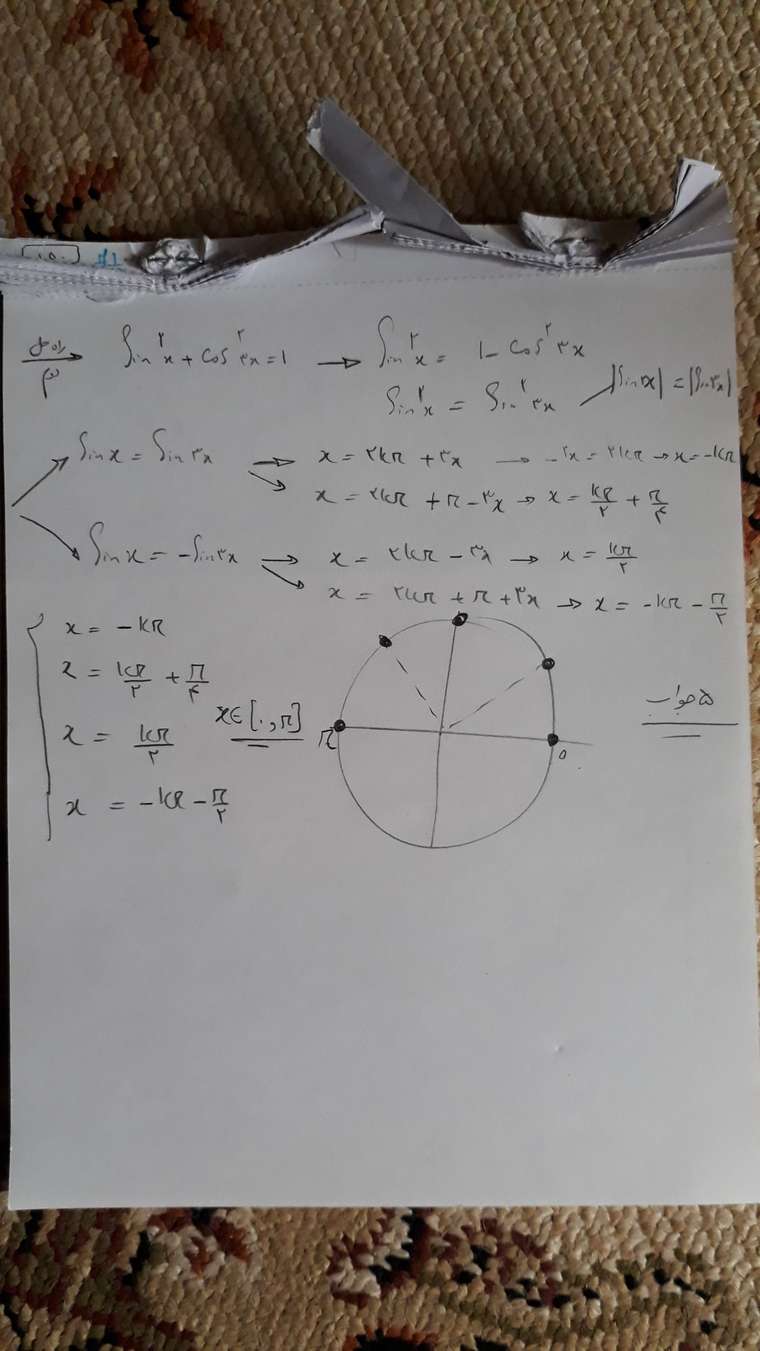 راه حل ۳
sin²x + cos²۳x = 1 → sin²x = 1 - cos²۳x
sin²x = sin²۳x |sinx| = |sin۳x|
sinx = sin۳x → x = ۲kπ + ۳x → -۲x = ۲kπ → x = -kπ
→ x = ۲kπ + π - ۳x → x = kπ/۲ + π/۴
sinx = -sin۳x → x = ۲kπ - ۳x → x = kπ/۲
→ x = ۲kπ + π + ۳x → x = -kπ - π/۲
x = -kπ
x = kπ/۲ + π/۴
x = kπ/۲
x = -kπ - π/۲
x∈[۰,π]
π
۰
۵ جواب